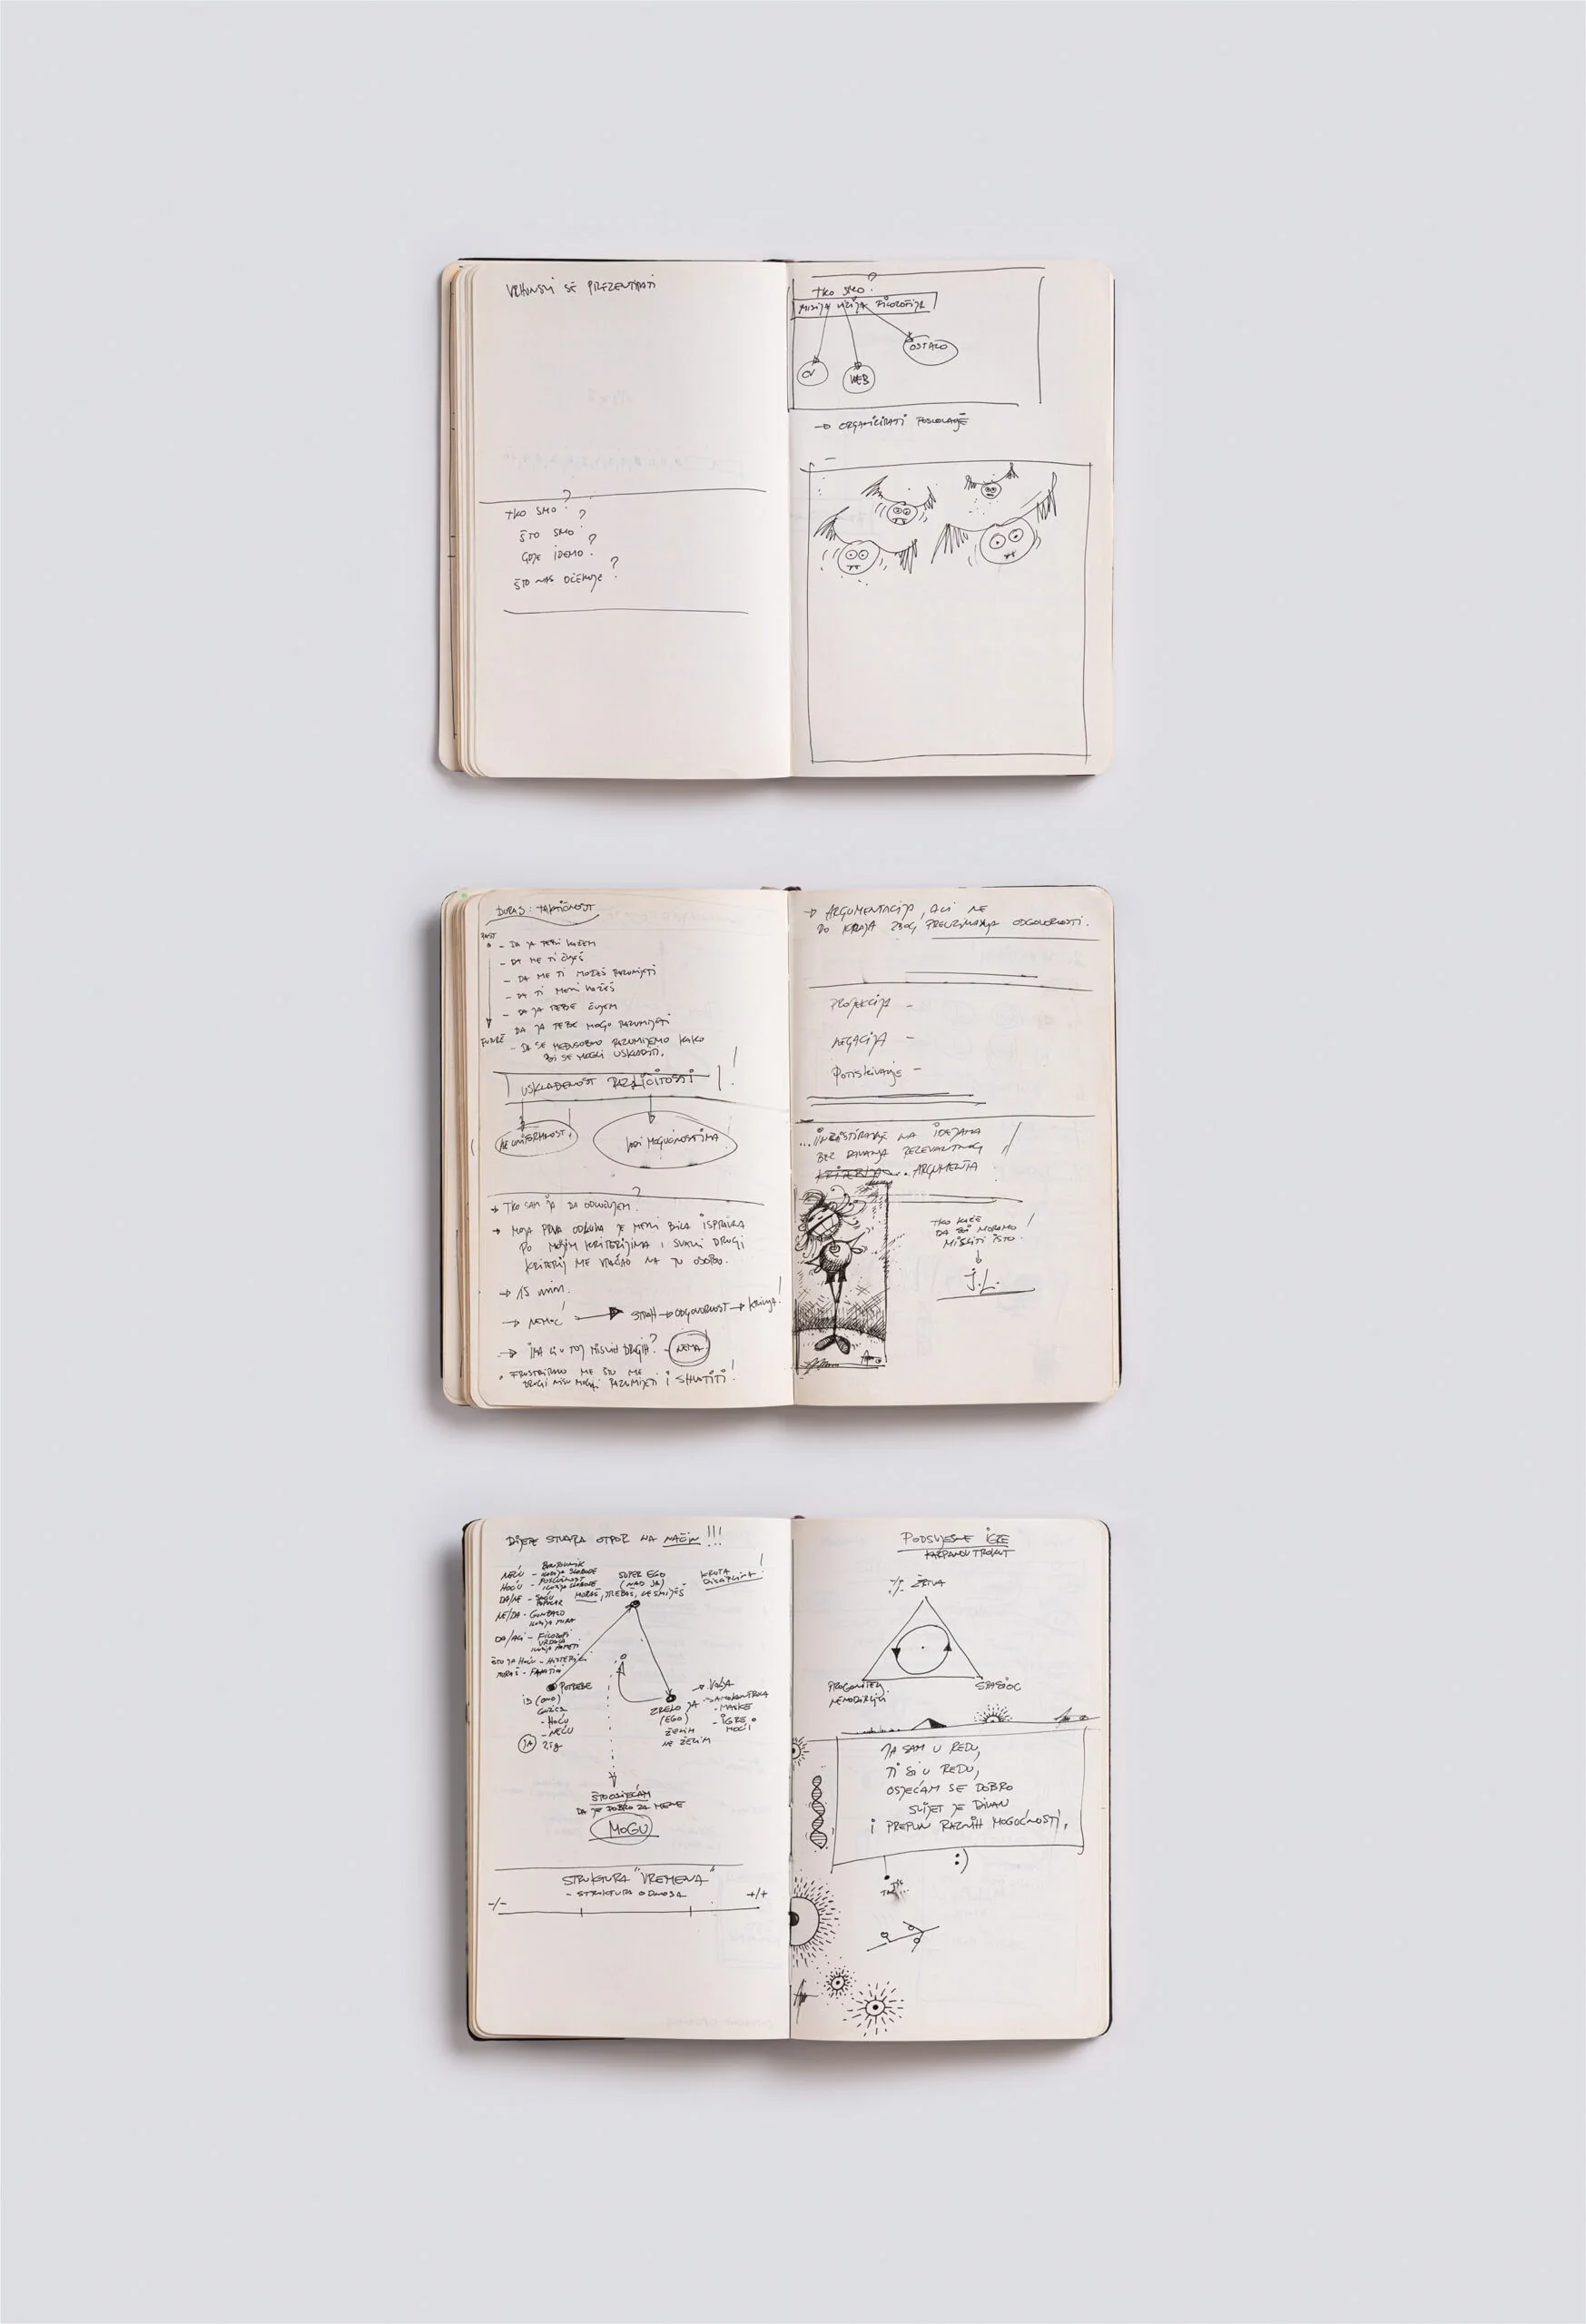 VRHUNSKI SE PREZENTIRATI
TKO SMO?
ŠTO SMO?
GDJE IDEMO?
ŠTO NAS OČEKUJE?
TKO SMO?
MISIJA VIZIJA FILOZOFIJA
CV
WEB
OSTALO
→ ORGANIZIRATI POSLOVANJE
TAKTIČNOST
- DA JA TEBI KAŽEM
- DA ME TI ČUJEŠ
- DA ME TI MOŽEŠ RAZUMIJETI
- DA TI MENI KAŽEŠ
- DA JA TEBE ČUJEM
- DA JA TEBE MOGO RAZUMIJETI
- DA SE MEĐUSOBNO RAZUMIJEMO KAKO
BI SE MOGLI USKLADITI.
USKLAĐENOST RAZLIČITOSTI!
NE UNIFORMNOST!
VODI MOGUĆNOSTIMA
→ TKO SAM JA DA ODLUČUJEM?
→ MOJA PRVA ODLUKA JE MENI BILA ISPRAVNA
PO MOJIM KRITERIJIMA I SVAKI DRUGI
KRITERIJ ME VRAĆAO NA TU OSOBU.
→ 15 min.
→ NEMOĆ! → STRAH → ODGOVORNOST → KRIVNJA!
→ IMA LI U TOJ MISLIH DRUGIH? - NEMA!
• FRUSTRIRALO ME ŠTO ME
DRUGI NISU MOGLI RAZUMIJETI I SHVATITI!
→ ARGUMENTACIJA, ALI NE
DO KRAJA ZBOG PREUZIMANJA ODGOVORNOSTI.
PROJEKCIJA -
NEGACIJA -
POTISKIVANJE -
...INZISTIRANJE NA IDEJAMA
BEZ DAVANJA RELEVANTNOG
KRITERIJA. ARGUMENTA!
TKO KAŽE
DA SVI MORAMO
MISLITI ISTO!
J.L.
DIJETE STVARA OTPOR NA NAČIN!!!
NEĆU - BUNTOVNIK
ILUZIJA SLOBODE
HOĆU - POSLUŠNOST
ILUZIJA SLOBODE
DA/NE -
NE/DA - GUNĐALO
ILUZIJA MIRA
DA/ALI - FILOZOFI
ILUZIJA PAMETI
ŠTO JA HOĆU -
MORAŠ - FANATIK
SUPER EGO
(NAD JA)
MORAŠ, TREBAŠ, NE SMIJEŠ
KROTA
DISCIPLINA!
POTREBE
ID (ONO)
- HOĆU
- NEĆU
JA
ZRELO JA
(EGO)
ŽELIM
NE ŽELIM
→ VOLJA
- SAMOKONTROLA
- MASKE
- IGRE
MOĆI
ŠTO OSJEĆAM
DA JE DOBRO ZA MENE
MOGU
STRUKTURA "VREMENA"
- STRUKTURA ODNOSA
-/-
+/+
PODSVJESNE IGRE
KARPANOV TROKUT
-/- ŽRTVA
PROGONITELJ
SPASIOC
JA SAM U REDU,
TI SI U REDU,
OSJEĆAM SE DOBRO
SVIJET JE DIVAN
I PREPUN RAZNIH MOGOĆNOSTI.
:)